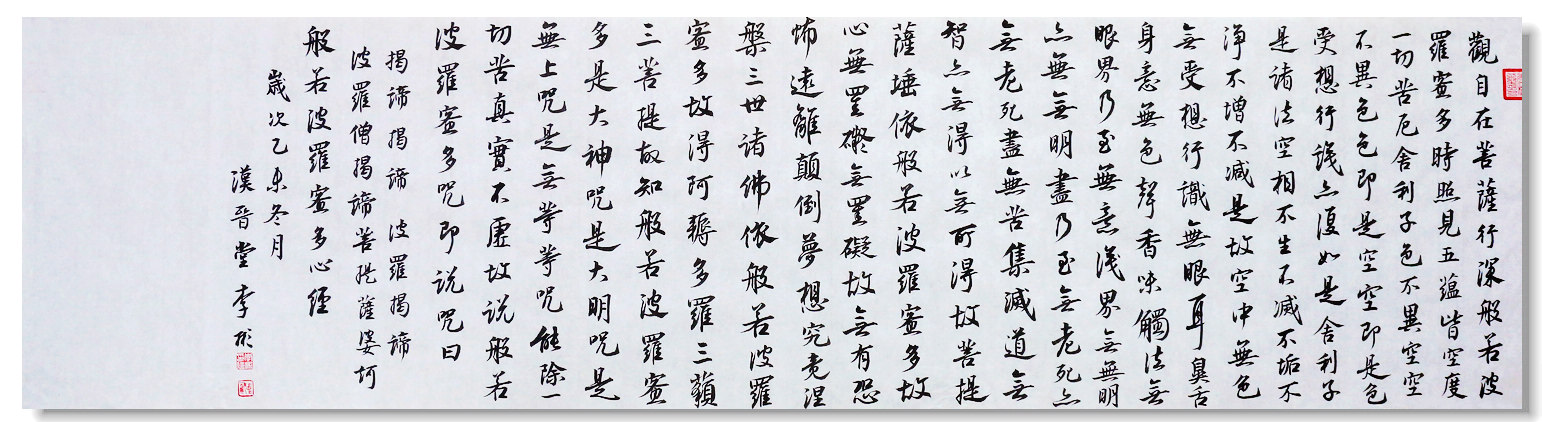 觀自在菩薩行深般若波
羅蜜多時照見五蘊皆空度
一切苦厄舍利子色不異空空
不異色色即是空空即是色
受想行識亦復如是舍利子
是諸法空相不生不滅不垢不
淨不增不減是故空中無色
無受想行識無眼耳鼻舌
身意無色聲香味觸法無
眼界乃至無意識界無無明
亦無無明盡乃至無老死亦
無老死盡無苦集滅道無
智亦無得以無所得故菩提
薩埵依般若波羅蜜多故
心無罣礙無罣礙故無有恐
怖遠離顛倒夢想究竟涅
槃三世諸佛依般若波羅
蜜多故得阿耨多羅三藐
三菩提故知般若波羅蜜
多是大神咒是大明咒是
無上咒是無等等咒能除一
切苦真實不虛故說般若
波羅蜜多咒即說咒曰
揭諦揭諦 波羅揭諦
波羅僧揭諦菩提薩婆訶
般若波羅蜜多心經
歲次乙未冬月
漢晉堂李彬